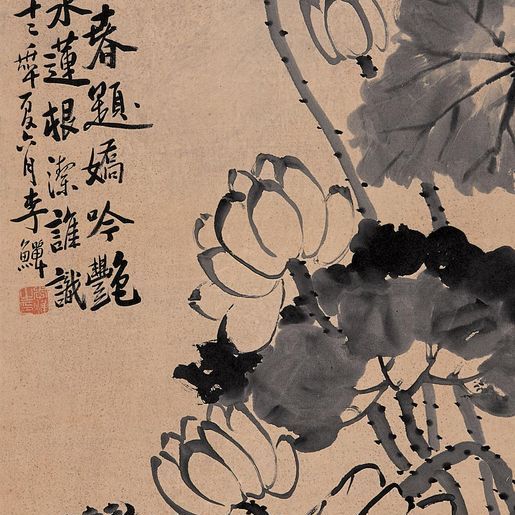 春題嬌吟艷
水蓮根潔誰識
十二年夏六月李鱓